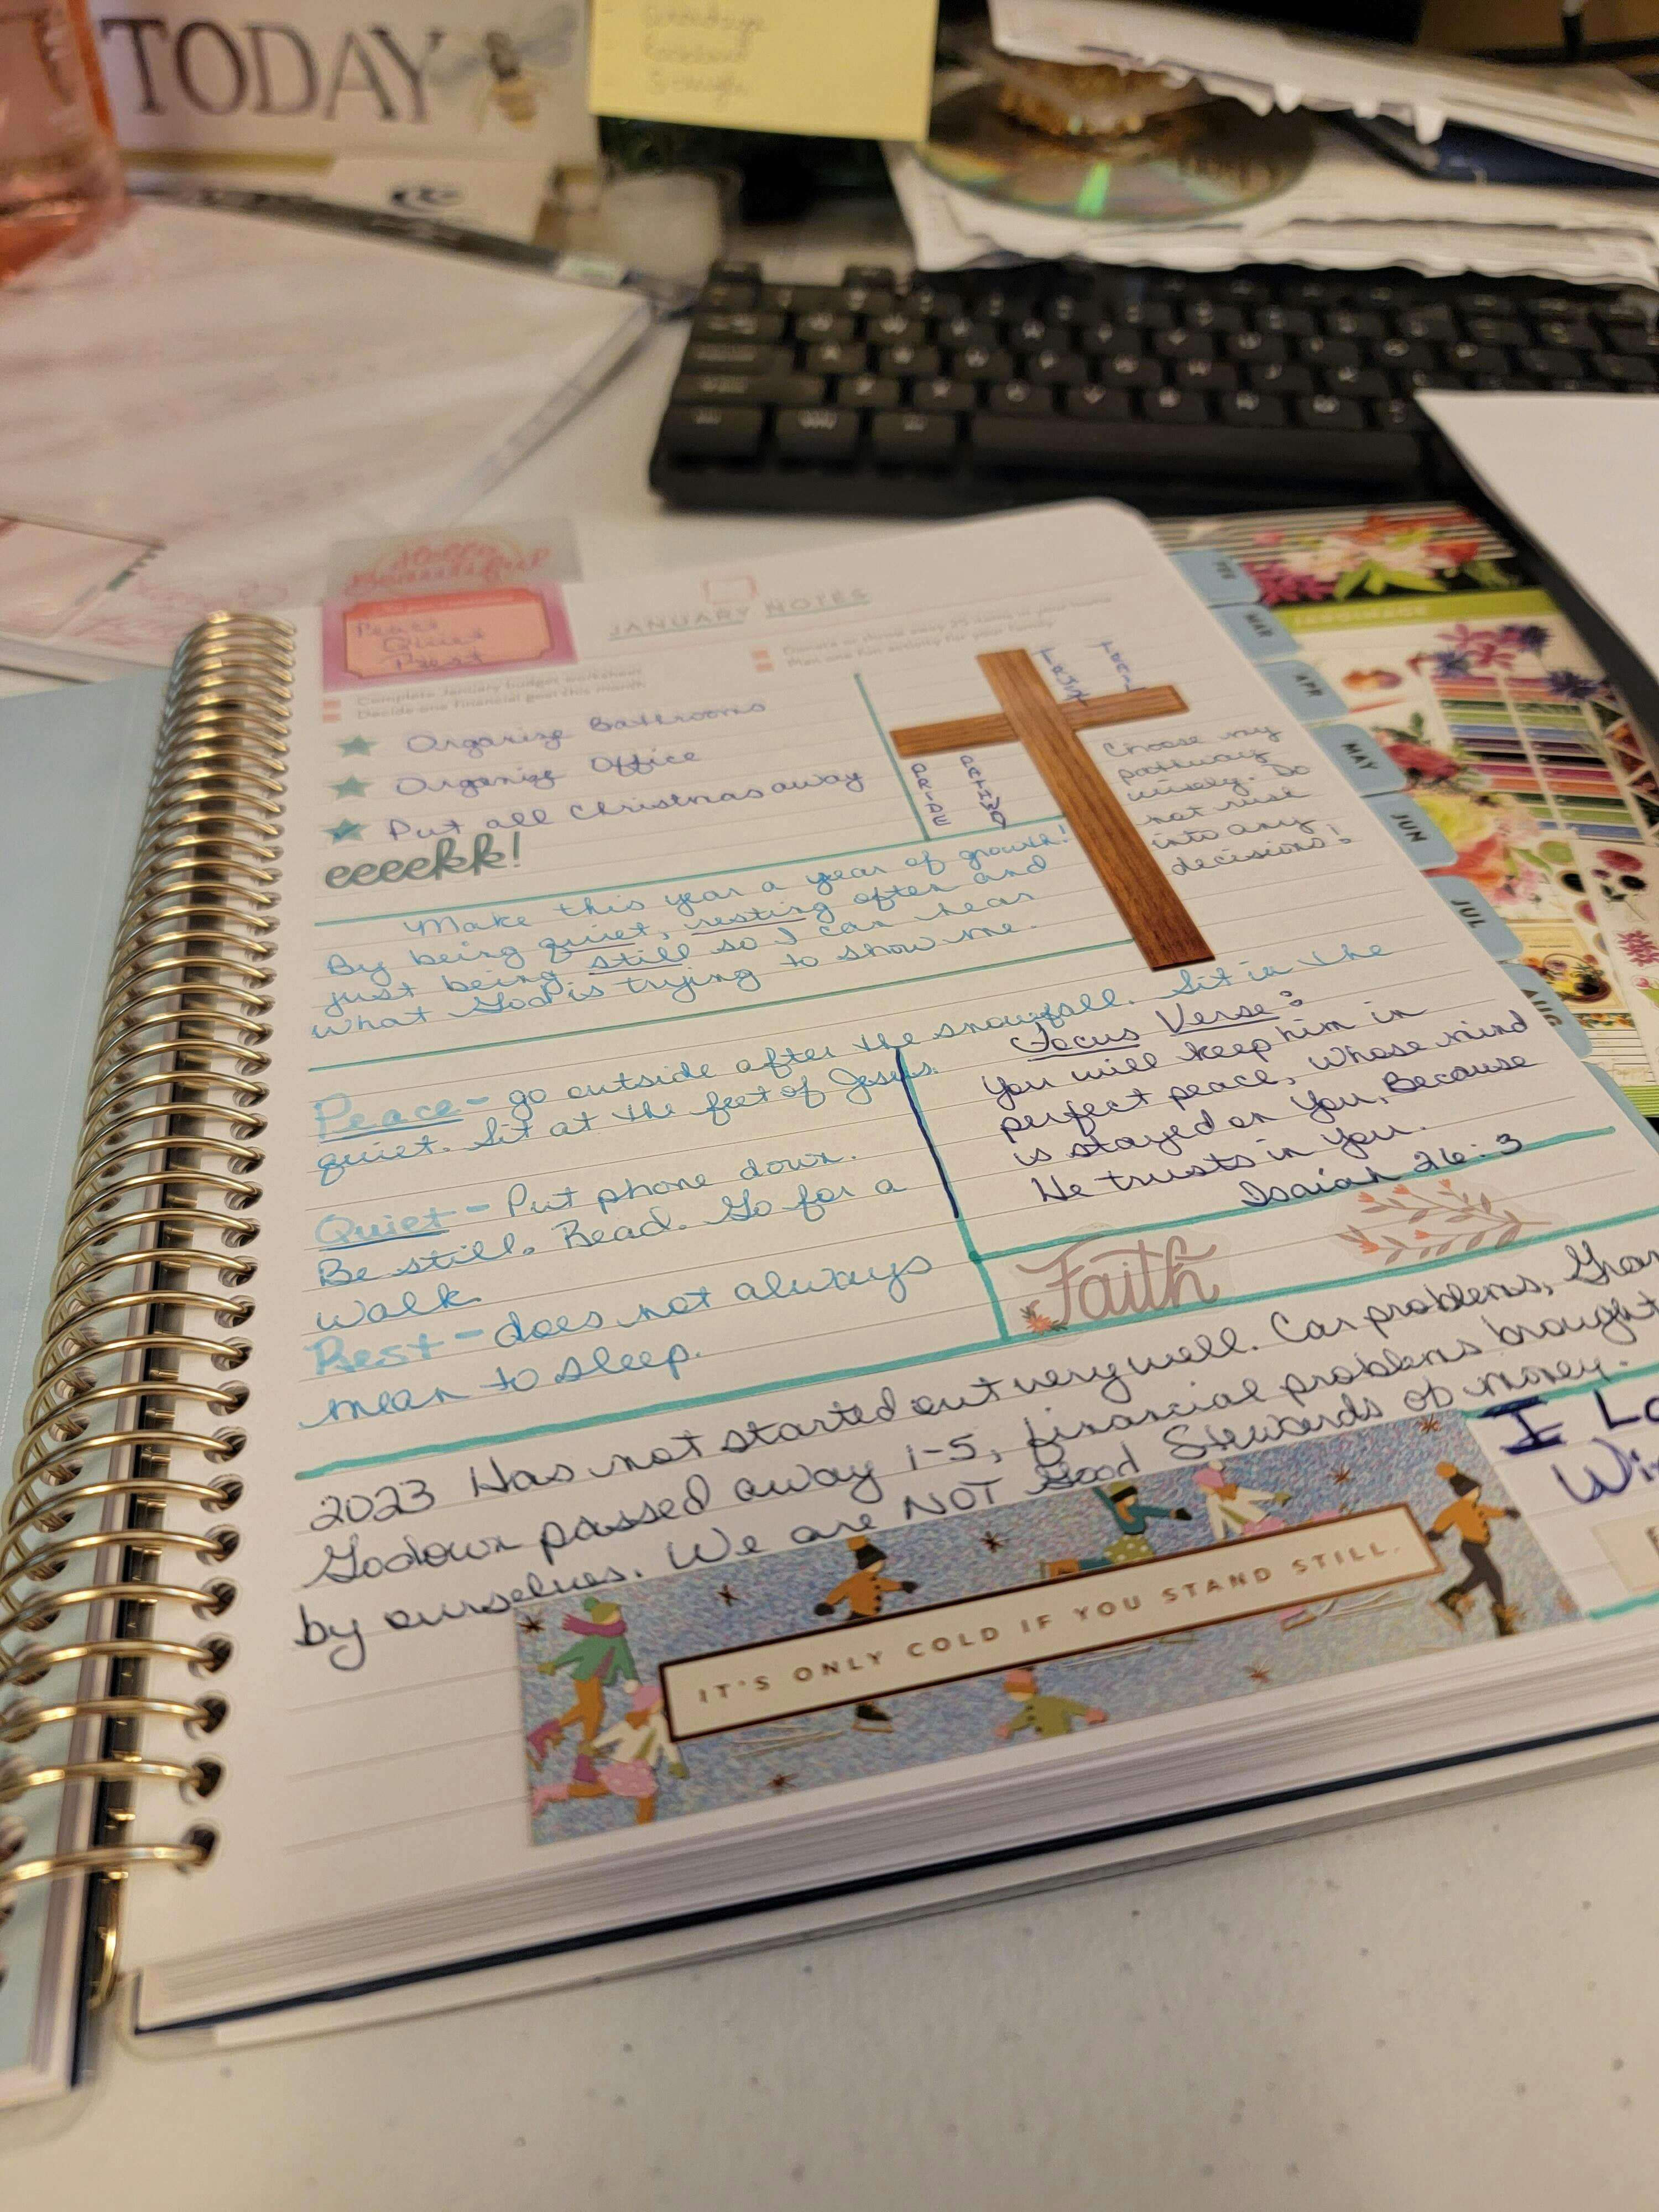 TODAY
Hello
Beautiful
Peace
Quiet
Rest
JANUARY NOTES
Complete January budget worksheet
Decide one financial goal this month
Donate or throw away 25 items in your home
Plan one fun activity for your family
Organize Bathrooms
Organize Office
Put all Christmas away
eeeekk!
PRIDE
Choose my
pathway
wisely. Do
not rush
into any
decisions!
Make this year a year of growth!
By being quiet, resting often and
just being still so I can hear
what God is trying to show me.
Peace - go outside after the snowfall. Sit in the
quiet. Sit at the feet of Jesus.
Quiet - Put phone down.
Be still. Read. Go for a
walk.
Rest - does not always
mean to sleep.
Focus Verse:
You will keep him in
perfect peace, whose mind
is stayed on You, Because
He trusts in You.
Isaiah 26:3
Faith
2023 Has not started out very well. Car problems,
passed away 1-5, financial problems brought
by ourselves. We are NOT Good Stewards of money.
I Lo
Wi
IT'S ONLY COLD IF YOU STAND STILL.
FEB
MAR
APR
MAY
JUN
JUL
AUG
JARDINAGE